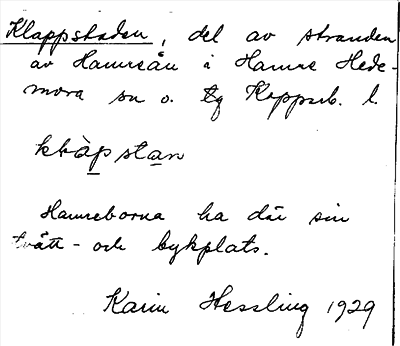 Klappstaden, del av stranden
av Hamreån i Hamre Hede-
mora sn o. tg Kopparb. l.
klàpstan
Hamreborna ha där sin
tvätt- och bykplats.
Karin Hessling 1929